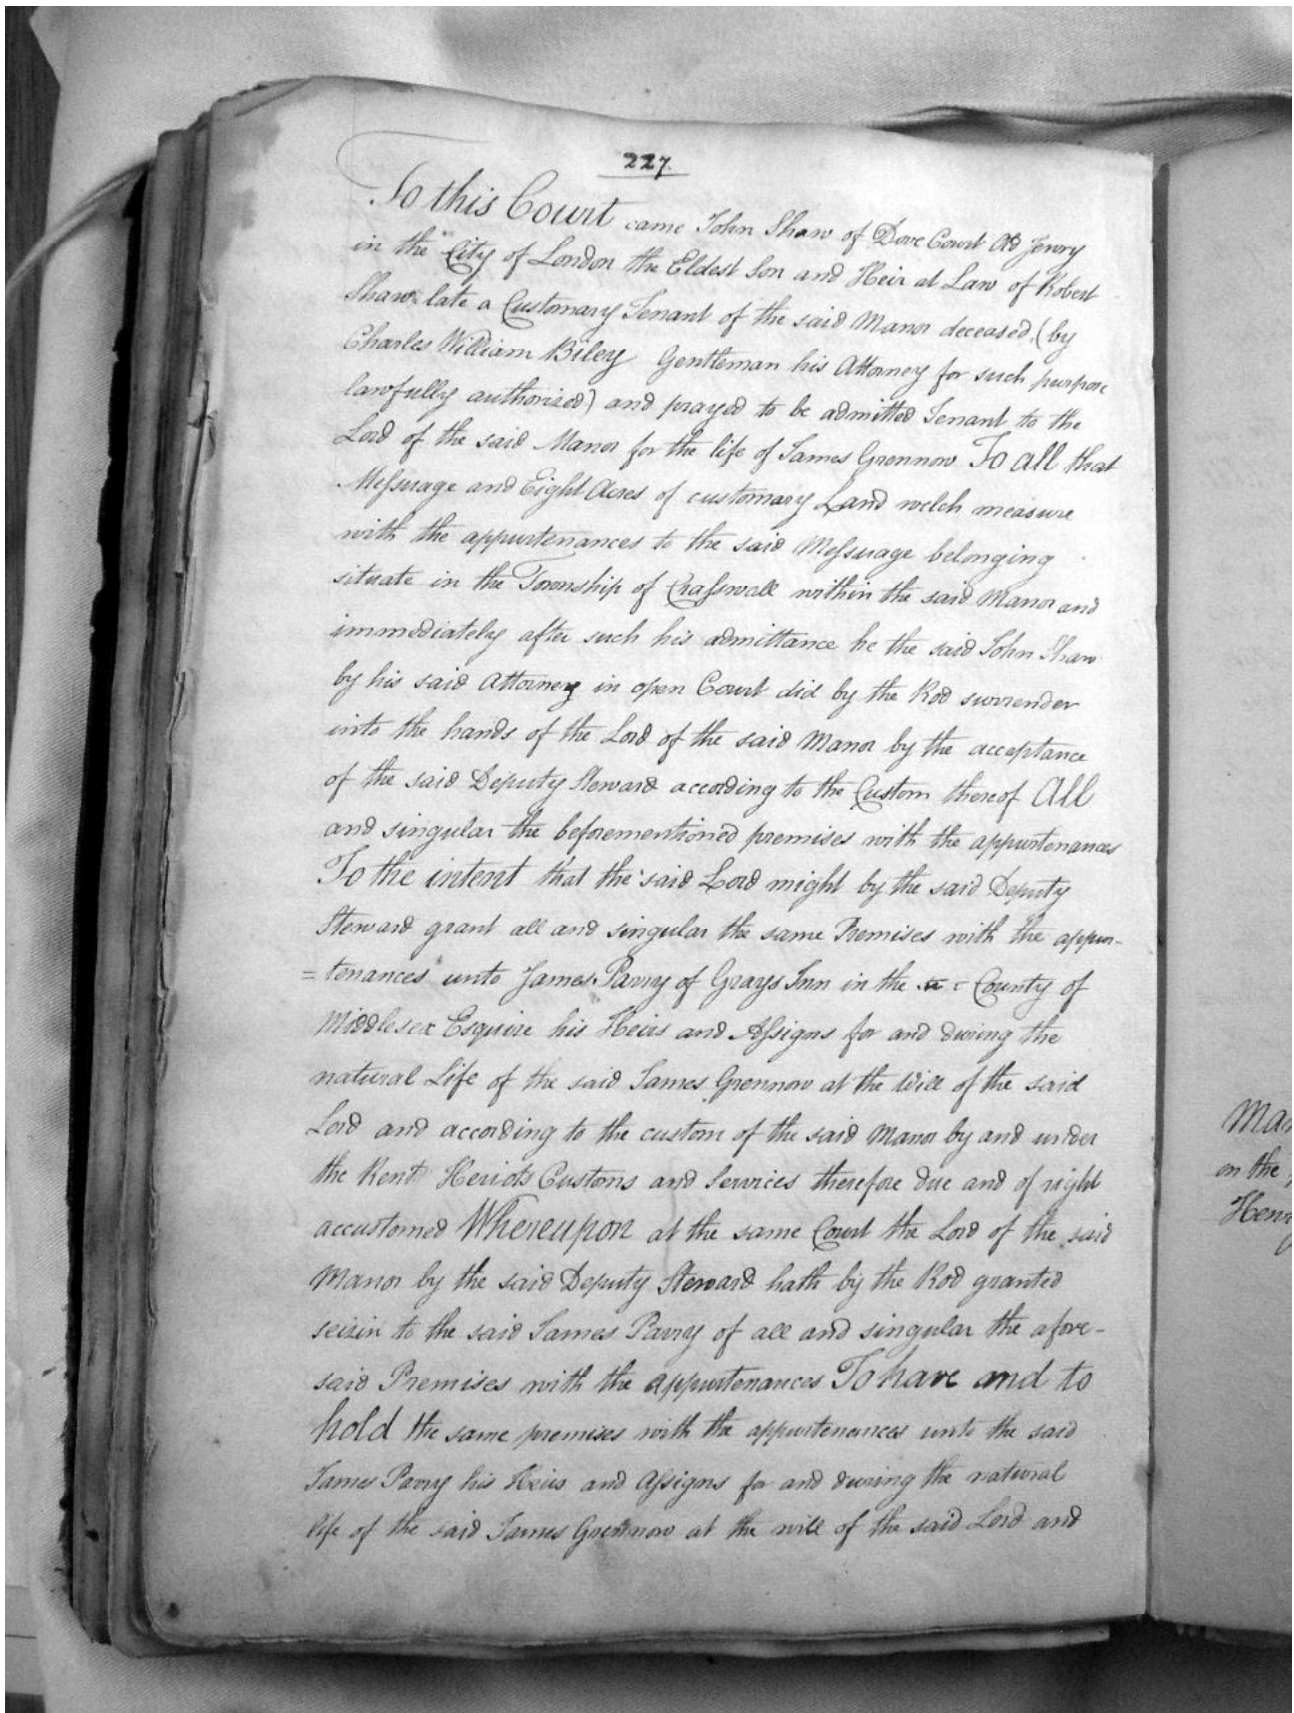 227.
To this Court came John Shaw of Dove Court Old Jewry
in the City of London the Eldest Son and Heir at Law of Robert
Shaw late a Customary Tenant of the said Manor deceased, (by
Charles William Biley Gentleman his Attorney for such purpose
lawfully authorized) and prayed to be admitted Tenant to the
Lord of the said Manor for the life of James Grennow To all that
Messuage and Eight Acres of customary Land welch measure
with the appurtenances to the said Messuage belonging
situate in the Township of Crasswall within the said Manor and
immediately after such his admittance he the said John Shaw
by his said Attorney in open Court did by the Rod surrender
into the hands of the Lord of the said Manor by the acceptance
of the said Deputy Steward according to the Custom thereof All
and singular the beforementioned premises with the appurtenances
To the intent that the said Lord might by the said Deputy
Steward grant all and singular the same Premises with the appur-
=tenances unto James Parry of Grays Inn in the County of
Middlesex Esquire his Heirs and Assigns for and during the
natural Life of the said James Grennow at the Will of the said
Lord and according to the custom of the said Manor by and under
the Rent Heriots Customs and Services therefore due and of right
accustomed Whereupon at the same Court the Lord of the said
Manor by the said Deputy Steward hath by the Rod granted
seizin to the said James Parry of all and singular the afore-
said Premises with the appurtenances To have and to
hold the same premises with the appurtenances unto the said
James Parry his Heirs and Assigns for and during the natural
life of the said James Grennow at the will of the said Lord and
Man
on the
Henry